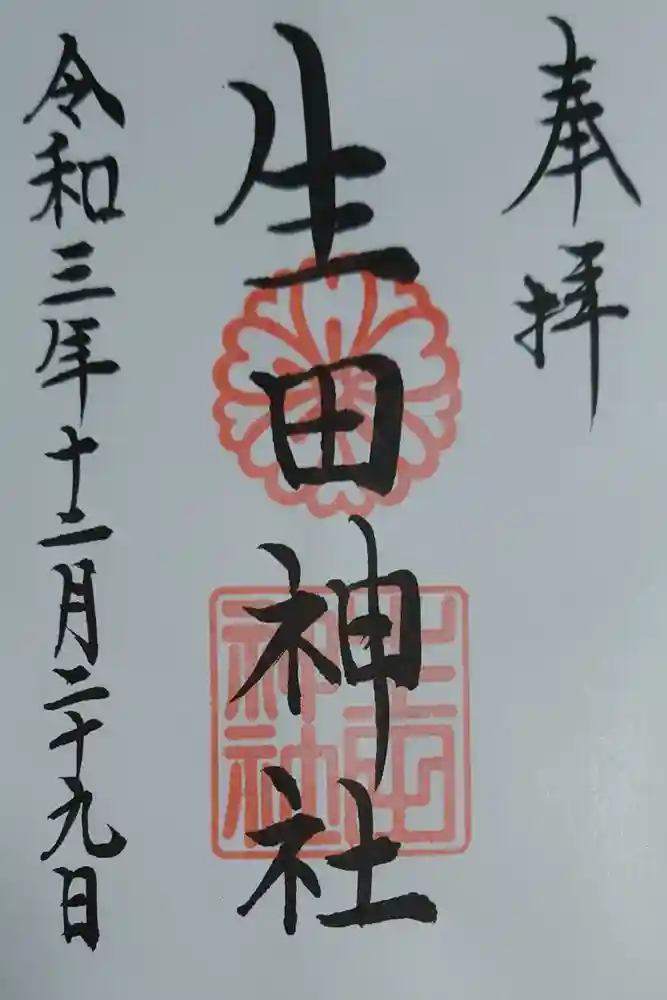 奉拝
生田神社
生田神社
令和三年十二月二十九日